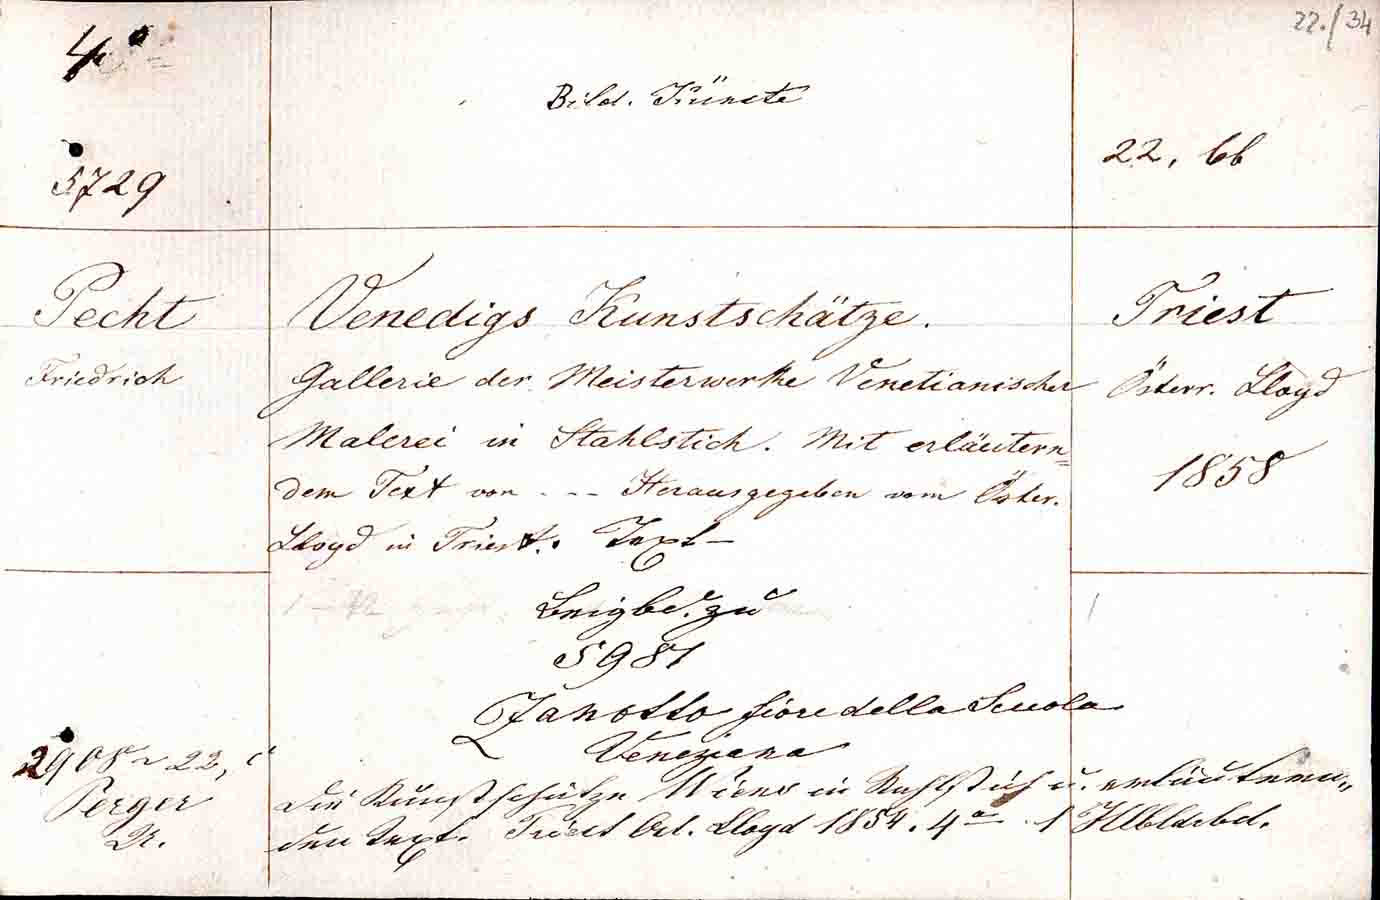 22./34
4°
Bild. Künste
5729
22, bb
Pecht
Venedigs Kunstschätze.
Triest
Friedrich
Gallerie der Meisterwerke Venetianischer
Österr. Lloyd
Malerei in Stahlstich. Mit erläutern=
1858
dem Text von - - - Herausgegeben vom Öster.
Lloyd in Triest. Text –
Beigbd. zu
5981
Zanotto fiore della Scuola
Veneziana
2908 22, c
Perger
Die Kunstschätze Wiens in Stahlstich u. erläuternn„
A.
den Text. Triest Öst. Lloyd 1854. 4° 1 Hlbldrbd.